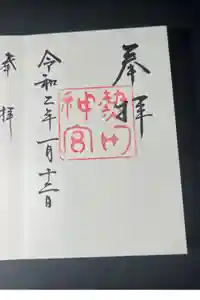 奉拝
熱田
神宮
令和二年一月十三日
奉拝